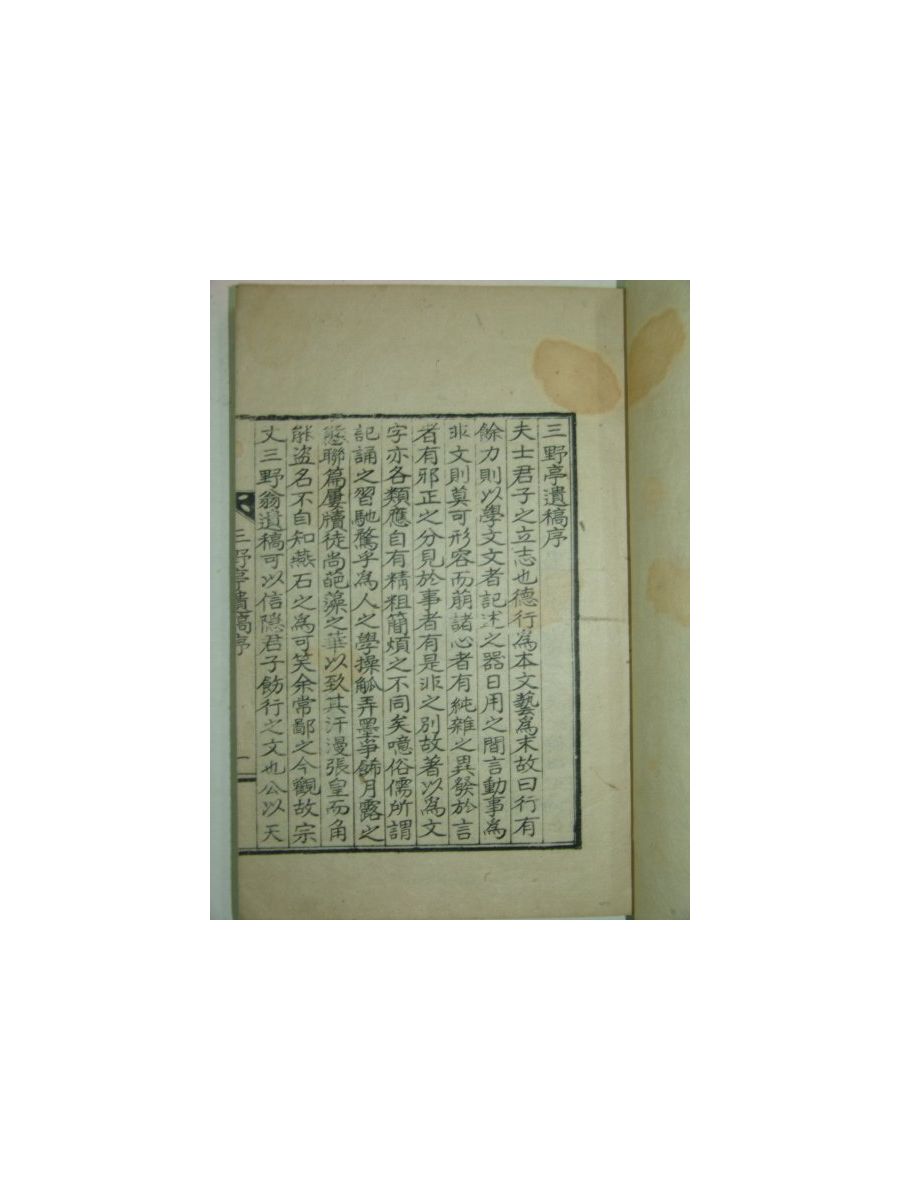 三野亭遺稿序
夫士君子之立志也德行爲本文藝爲末故曰行有
餘力則以學文文者記述之器日用之間言動事爲
非文則莫可形容而萠諸心者有純雜之異發於言
者有邪正之分見於事者有是非之別故著以爲文
字亦各類應自有精粗簡煩之不同矣噫俗儒所謂
記誦之習馳騖乎爲人之學操觚弄墨爭餙月露之
態聯篇屢牘徒尚葩藻之華以致其汗漫張皇而角
能盗名不自知燕石之爲可笑余常鄙之今觀故宗
丈三野翁遺稿可以信隱君子餙行之文也公以天
三野亭遺稿序
一